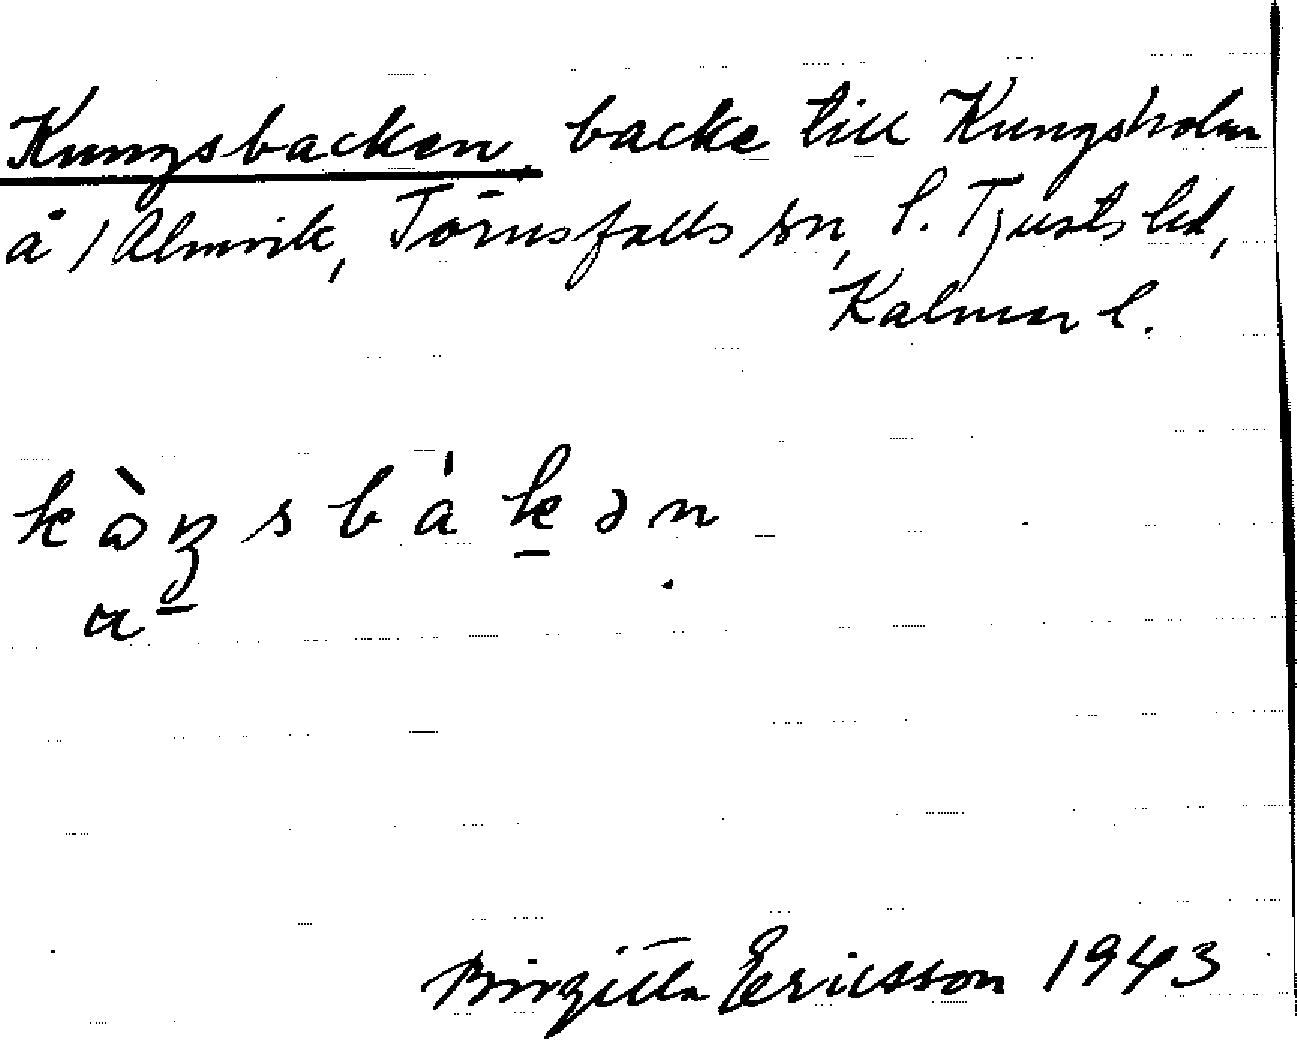 Kungsbacken, backe till Kungsholm
å /Almvik, Törnsfalls sn, S. Tjusts hd,
Kalmar l.
k ɷ̀ ŋ s b á k ə n
a
Birgitta Ericsson 1943